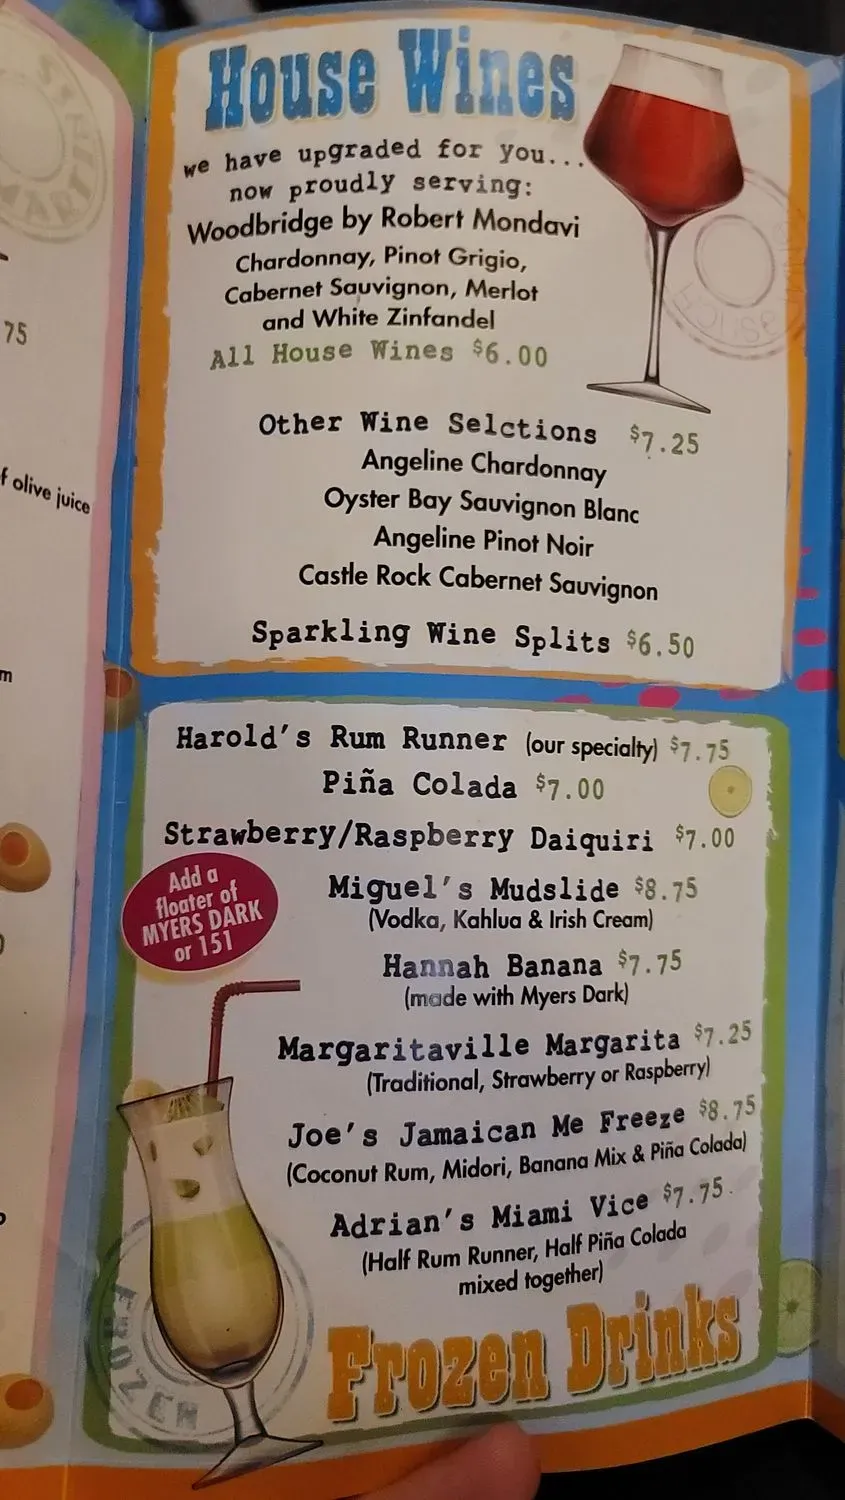 House Wines
we have upgraded for you...
now proudly serving:
Woodbridge by Robert Mondavi
Chardonnay, Pinot Grigio,
Cabernet Sauvignon, Merlot
and White Zinfandel
All House Wines $6.00
Other Wine Selctions $7.25
Angeline Chardonnay
Oyster Bay Sauvignon Blanc
Angeline Pinot Noir
Castle Rock Cabernet Sauvignon
Sparkling Wine Splits $6.50
Harold's Rum Runner (our specialty) $7.75
Piña Colada $7.00
Strawberry/Raspberry Daiquiri $7.00
Add a
floater of
MYERS DARK
or 151
Miguel's Mudslide $8.75
(Vodka, Kahlua & Irish Cream)
Hannah Banana $7.75
(made with Myers Dark)
Margaritaville Margarita $7.25
(Traditional, Strawberry or Raspberry)
Joe's Jamaican Me Freeze $8.75
(Coconut Rum, Midori, Banana Mix & Piña Colada)
Adrian's Miami Vice $7.75
(Half Rum Runner, Half Piña Colada
mixed together)
Frozen Drinks
FROZEN
75
olive juice